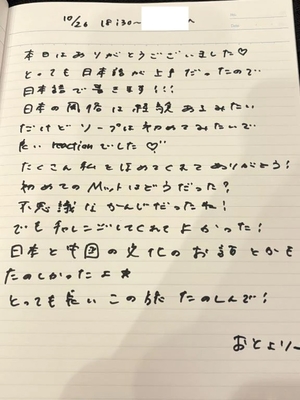 10/26 18:30〜
本日はありがとうございました♡
とっても日本語が上手だったので
日本語で書きます!!!
日本の風俗は経験あるみたい
だけどソープは初めてみたいで
良いreactionでした♡
たくさん私をほめてくれてありがとう!
初めてのMットはどうだった?
不思議なかんじだったね!
でもチャレンジしてくれてよかった!
日本と中国の文化のお話とかも
たのしかったよ★
とっても長いこの旅たのしんで!